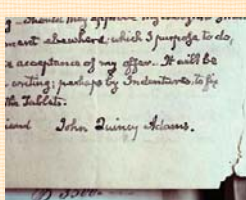 should may approve
ment elsewhere, which I purpose to do,
e acceptance of my offer. It will be
writing; perhaps by Indentures, to fix
the Tablets.
John Quincy Adams.